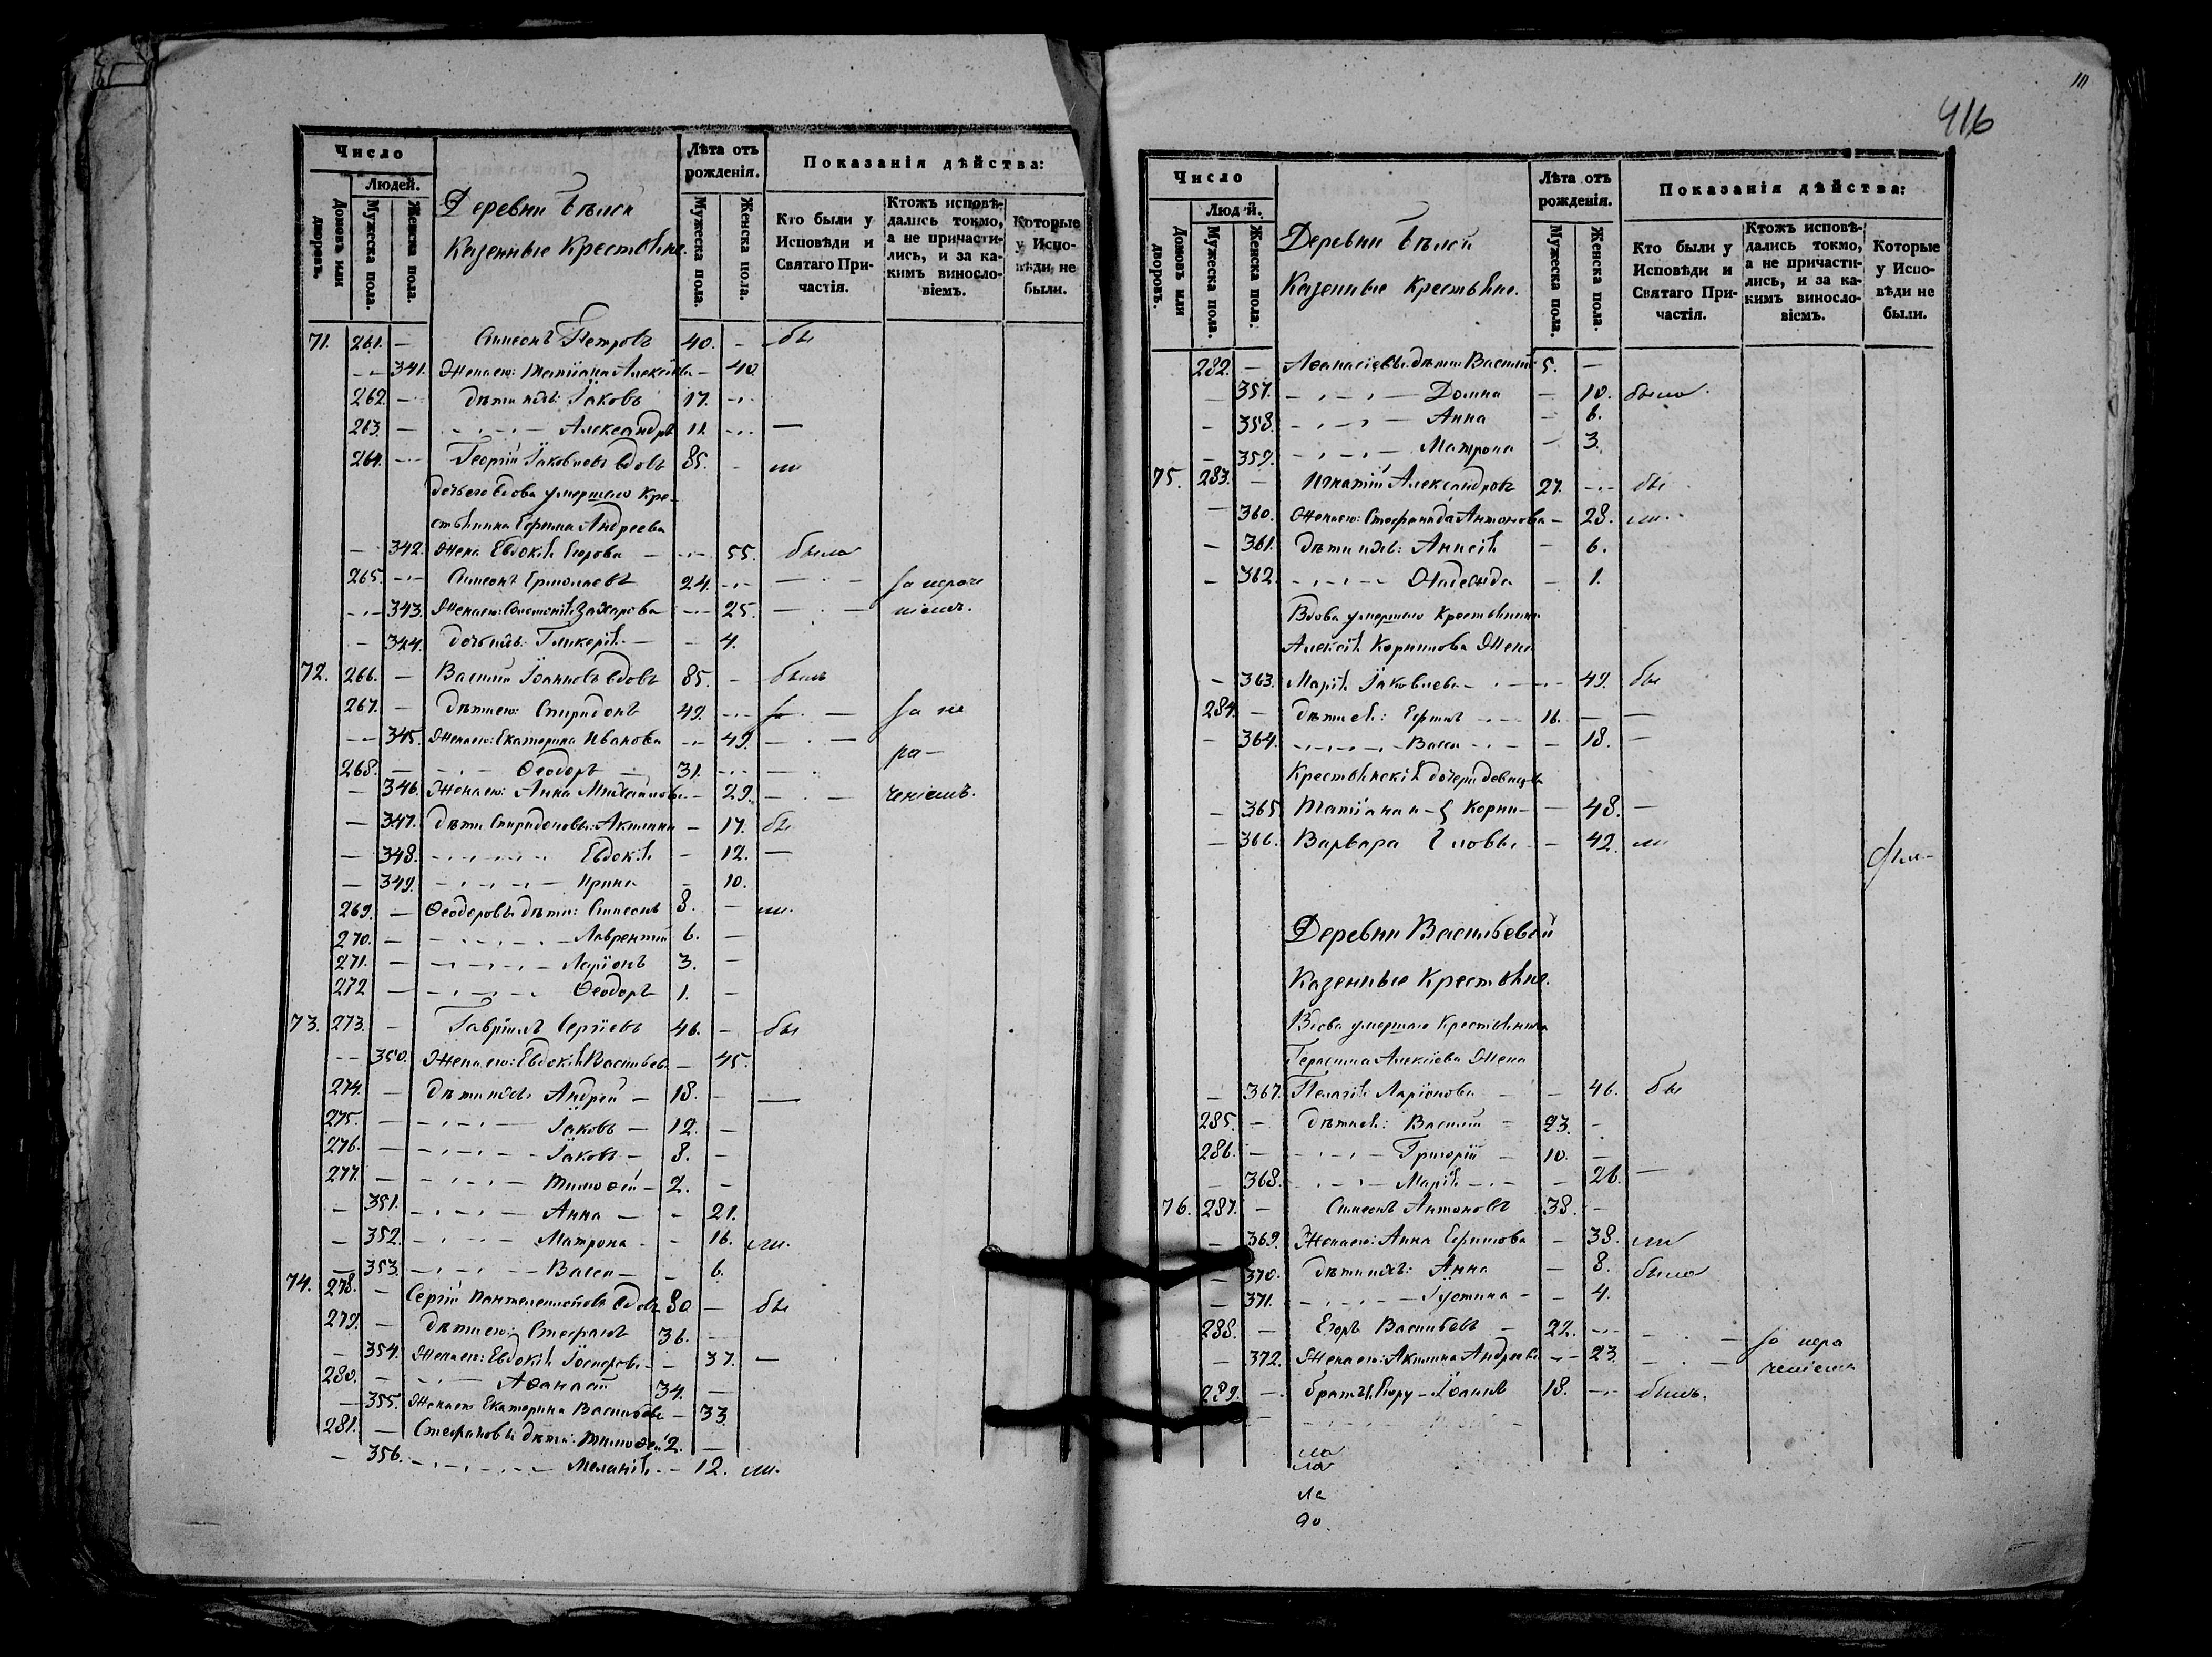 Число
Людей.
Домовъ или дворовъ.
Мужеска пола.
Женска пола.
Деревни
Казенные Крестьяне.
Лѣта отъ рожденія.
Мужеска пола.
Женска пола.
Показанія дѣйства:
Кто были у Исповѣди и Святаго Причастія.
Ктожъ исповѣдались токмо, а не причастились, и за какимъ винословіемъ.
Которые у Исповѣди не были.
71. 261. — Симеонъ Петровъ 40. — бы
— 341. Жена его: Татіана Алексѣева — 40.
262. — дѣти ихъ: Іаковъ 17. —
263. — Александръ 11. — —
264. — Георгій Іаковлевъ вдовъ 85. — ли
дочь его вдова умершаго Кре-
стьянина Андреева
— 342. Жена Евдокія Егорова — 55. была
265. — Симеонъ Ермолаевъ 24. — — за нераче
— 343. Жена его: Захарова — 25. — ніемъ.
— 344. дочь ихъ: Гликерія — 4.
72. 266. — Василій Іоанновъ вдовъ 85. — былъ
267. — дѣти его: Спиридонъ 49. — — за не
— 345. Жена его: Екатерина Иванова — 49. — ра-
268. — Ѳеодоръ 31. — —
— 346. Жена его: Анна Михайлова — 29. — ченіемъ.
— 347. дѣти Спиридоновы: Акилина — 17. бы
— 348. Евдокія — 12. —
— 349. Ирина — 10.
269. — Ѳеодоровы дѣти: Симеонъ 8. — ли.
270. — Лаврентій 6. —
271. — Ларіонъ 3. —
272 — Ѳеодоръ 1. —
73. 273. — Гавріилъ Сергіевъ 46. — бы
— 350. Жена его: Евдокія Васильева — 45.
274. — дѣти ихъ: Андрей — 18. — —
275. — Іаковъ — 12. —
276. — Іаковъ — 8. —
277. — Тимоѳей — 2. —
— 351. Анна — 21.
— 352. Матрона — 16. ли.
— 353. Васса — 6.
74. 278. — Сергій Пантелеимоновъ вдовъ 80 — бы
279. — дѣти его: Стефанъ 36. —
— 354. Жена его: Евдокія — 37. —
280. — Аѳанасій 34. —
— 355. Жена его Екатерина Васильева — 33
281. — Стефановы дѣти: Тимоѳей 2. —
— 356. Меланія — 12. ли.
111
416
Число
Людей.
Домовъ или дворовъ.
Мужеска пола.
Женска пола.
Деревни
Казенные Крестьяне.
Лѣта отъ рожденія.
Мужеска пола.
Женска пола.
Показанія дѣйства:
Кто были у Исповѣди и Святаго Причастія.
Ктожъ исповѣдались токмо, а не причастились, и за какимъ винословіемъ.
Которые у Исповѣди не были.
282. — Аѳанасіевы дѣти Василій 5. —
— 357. Домна — 10. была
— 358. Анна — 6.
— 359. Матрона — 3.
75. 283. — Игнатій Александровъ 27. — бы
— 360. Жена его: Стефанида Антонова — 28. ли.
— 361. дѣти ихъ: Анисія — 6.
— 362. Надежда — 1.
Вдова умершаго Крестьянина
Алексѣя Корнилова Жена
— 363. Марія Іаковлева — 49. бы
284. — дѣти ея: 16. — —
— 364. Васса — 18. —
Крестьянскія дочери девицы
— 365 Татіана и Корни- — 48. —
— 366. Варвара ловы — 42. ли
Деревни Васильевой
Казенные Крестьяне.
Вдова умершаго Крестьянина
Герасима Алексіева Жена
— 367. Пелагія Ларіонова — 46. бы
285. — дѣти ея: Василій — 23. —
286. — Григорій — 10. —
— 368. Марія — 26. —
76. 287. — Симеонъ Антоновъ 38. —
— 369. Жена его: Анна — 38. ли
— 370. дѣти ихъ: Анна — 8. была
— 371. Іустина — 4.
288. — Егоръ Васильевъ — 22. — — за нера
— 372. Жена его: Акилина Андреева — 23. — ченіемъ
289. — братъ Егору — Іоаннъ 18. — былъ.
ла
ла
ла